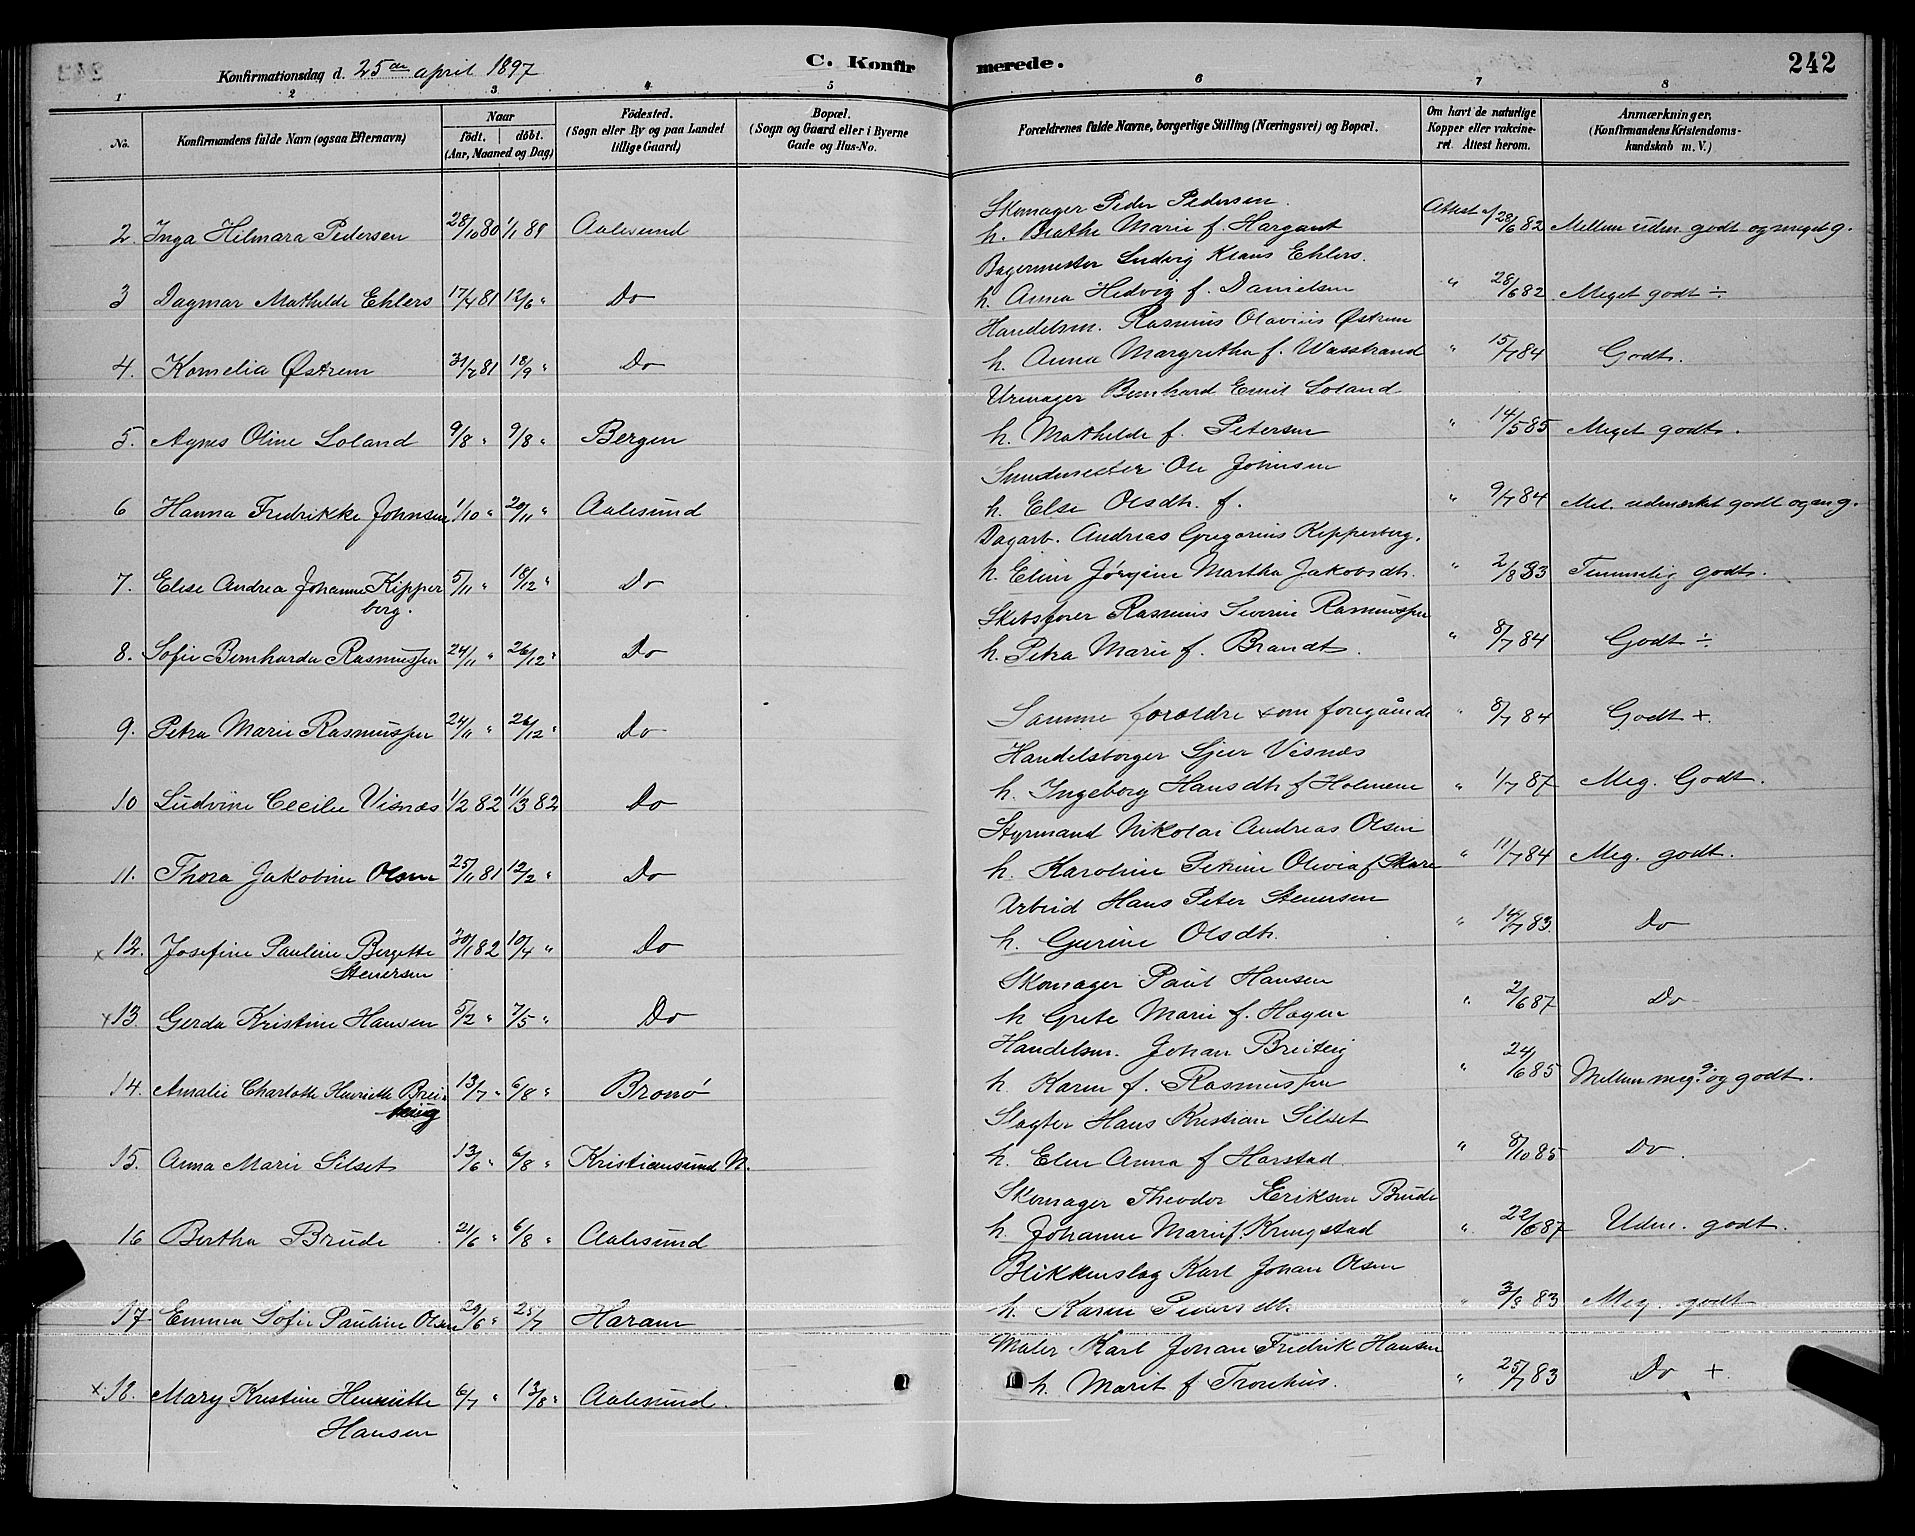 Konfirmationsdag d. 25de april 1897
C. Konfirmerede.
242
1 2 3 4 5 6 7 8
No.
Konfirmandens fulde Navn (ogsaa Efternavn)
Naar
födt. döbt.
(Aar, Maaned og Dag)
Födested.
(Sogn eller By og paa Landet
tillige Gaard)
Bopæl.
(Sogn og Gaard eller i Byerne
Gade og Hus-No.
Forældrenes fulde Navne, borgerlige Stilling (Næringsvei) og Bopæl.
Om havt de naturlige
Kopper eller vakcine-
ret. Attest herom.
Anmærkninger.
(Konfirmandens Kristendoms-
kundskab m. V.)
Skomager Peder Pedersen.
2. Inga Hilmara Pedersen 28/10 80 1/1 81 Aalesund h. Beathe Marie f. Hargaut Attest af 28/6 82 Mellem uden godt og meget g.
Bagermester Ludvig Klaus Ehlers.
3 Dagmar Mathilde Ehlers 17/4 81 12/6 " Do h. Anna Hedvig f. Danielsen " 28/6 82 Meget godt ÷
Handelsm. Rasmus Olavius Østrem
4. Kornelia Østrem 31/7 81 18/9 " Do h. Anna Margretha f. Wasstrand " 15/7 84 Godt.
Urmager Bernhard Emil Soland
5. Agnes Oline Soland 9/8 " 9/8 " Bergen h. Mathilde f. Petersen " 14/5 85 Meget godt.
Ole Johnsen
6 Hanna Fredrikke Johnsen 1/10 " 20/11 " Aalesund h. Else Olsdtr. f. " 9/7 84 Mel. udmærket godt og m g.
Dagarb. Andreas Gregorius Kipperberg.
7. Elise Andrea Johanne Kipper 5/11 " 18/12 " Do h. Eline Jørgine Martha Jakobsdtr. " 2/8 83 Temmelig godt.
berg.
Skibsfører Rasmus Severin Rasmussen
8. Sofie Bernharda Rasmussen 24/11 " 26/12 " Do h. Petra Marie f. Brandt. " 8/7 84 Godt ÷
9. Petra Marie Rasmussen 24/11 " 26/12 " Do Samme forældre som foregående " 8/7 84 Godt +.
Handelsborger Sjur Visnæs
10 Ludvine Cecilie Visnæs 1/2 82 11/3 82 Do h. Ingeborg Hansdtr f Holmene " 1/7 87 Meg. Godt.
Styrmand Nikolai Andreas Olsen
11. Thora Jakobine Olsen 25/11 81 12/2 " Do h. Karoline Petrine Olivia f Skare " 11/7 84 Meg. godt.
Arbeid Hans Peter Stenersen
x 12. Josefine Pauline Bergette 30/1 82 10/4 " Do h. Gurine Olsdtr. " 14/7 83. Do
Stenersen
Skomager Paul Hansen
x 13. Gerda Kristine Hansen 5/2 " 7/5 " Do h Grete Marie f. Hagen " 2/6 87 Do
Handelsm. Johan Breiteig
14. Amalie Charlotte Henriette Brei- 13/7 " 6/8 " Bronø h. Karen f. Rasmussen " 24/6 85 Mellem meg. og godt.
teig
Slagter Hans Kristian Silset
15. Anna Marie Silset 13/6 " 6/8 " Kristiansund N. h. Elen Anna f Harstad " 8/10 85 Do.
Skomager Theodor Eriksen Brude
16 Bertha Brude 21/6 " 6/8 " Aalesund h. Johanne Marie f. Kringstad " 22/6 87 Udm. godt.
Blikkenslag Karl Johan Olsen
17. Emma Sofie Pauline Olsen 29/6 " 25/7 Haram h. Karen Pedersdtr. " 3/8 83 Meg. godt
Maler Karl Johan Fredrik Hansen
x 18. Mary Kristine Henriette 6/7 " 13/8 " Aalesund. h. Marit f Tronhus. " 25/7 83 Do +
Hansen